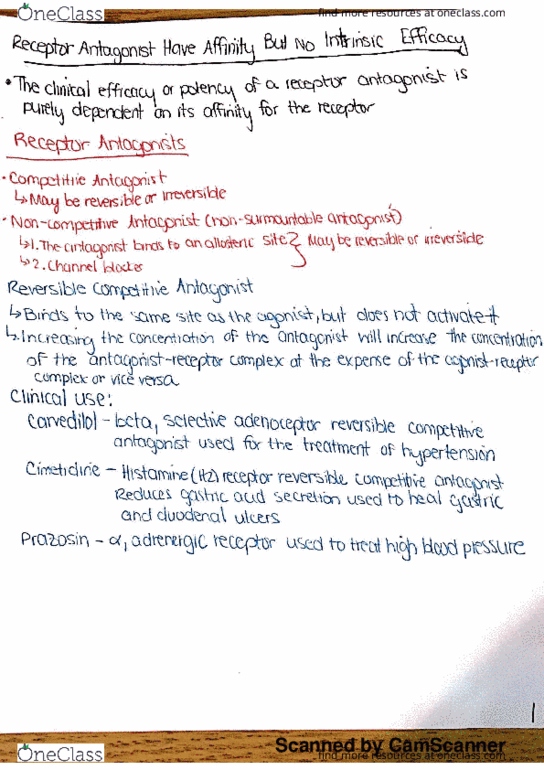 OneClass
find more resources at oneclass.com
Receptor Antagonist Have Affinity But No Intrinsic Efficacy
• The clinical efficacy or potency of a receptor antagonist is
purely dependent on its affinity for the receptor
Receptor Antagonists
• Competitive Antagonist
↳ May be reversible or irreversible
• Non-competitive Antagonist (non-surmountable antagonist)
↳ 1. The antagonist binds to an allosteric site } May be reversible or irreversible
↳ 2. Channel blocker
Reversible Competitive Antagonist
↳ Binds to the same site as the agonist, but does not activate it
↳ Increasing the concentration of the antagonist will increase the concentration
of the antagonist-receptor complex at the expense of the agonist-receptor
complex or vice versa
Clinical use:
Carvedilol - beta, selective adenoceptor reversible competitive
antagonist used for the treatment of hypertension
Cimetidine - Histamine (H2) receptor reversible competitive antagonist
Reduces gastric acid secretion used to heal gastric
and duodenal ulcers
Prazosin - α, adrenergic receptor used to treat high blood pressure
1
Scanned by CamScanner
OneClass
find more resources at oneclass.com